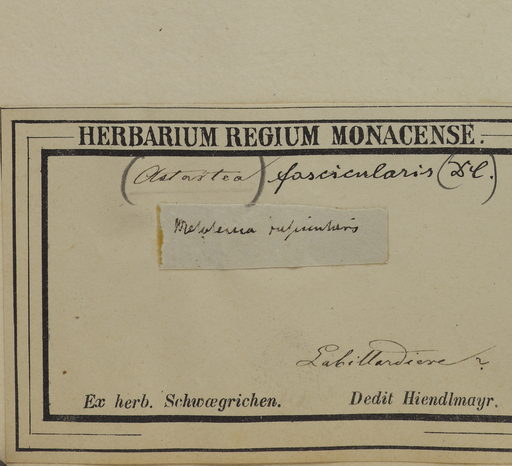 HERBARIUM REGIUM MONACENSE.
(Astartea) fascicularis (DC.
Labillardiere ?
Ex herb. Schwægrichen. Dedit Hiendlmayr.